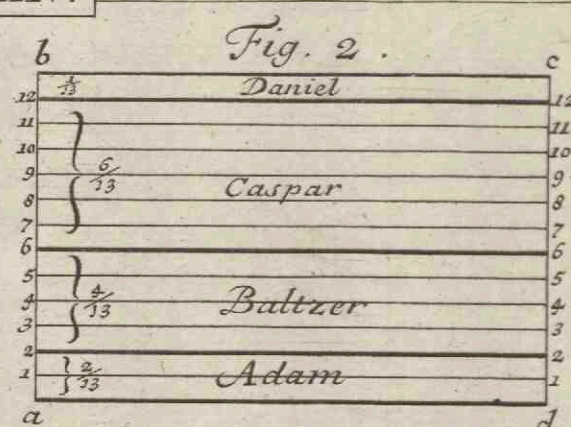 Fig. 2.
b c
1/13 Daniel
12 12
11 11
10 10
9 6/13 9
8 Caspar 8
7 7
6 6
5 5
4 4/13 Baltzer 4
3 3
2 2
1 2/13 Adam 1
a d